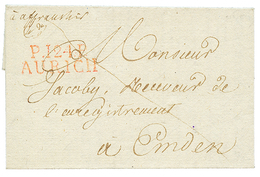 P.124.P.
AURICH
Monsieur
Jacoby, Receveur de
l'enregistrement
a Emden